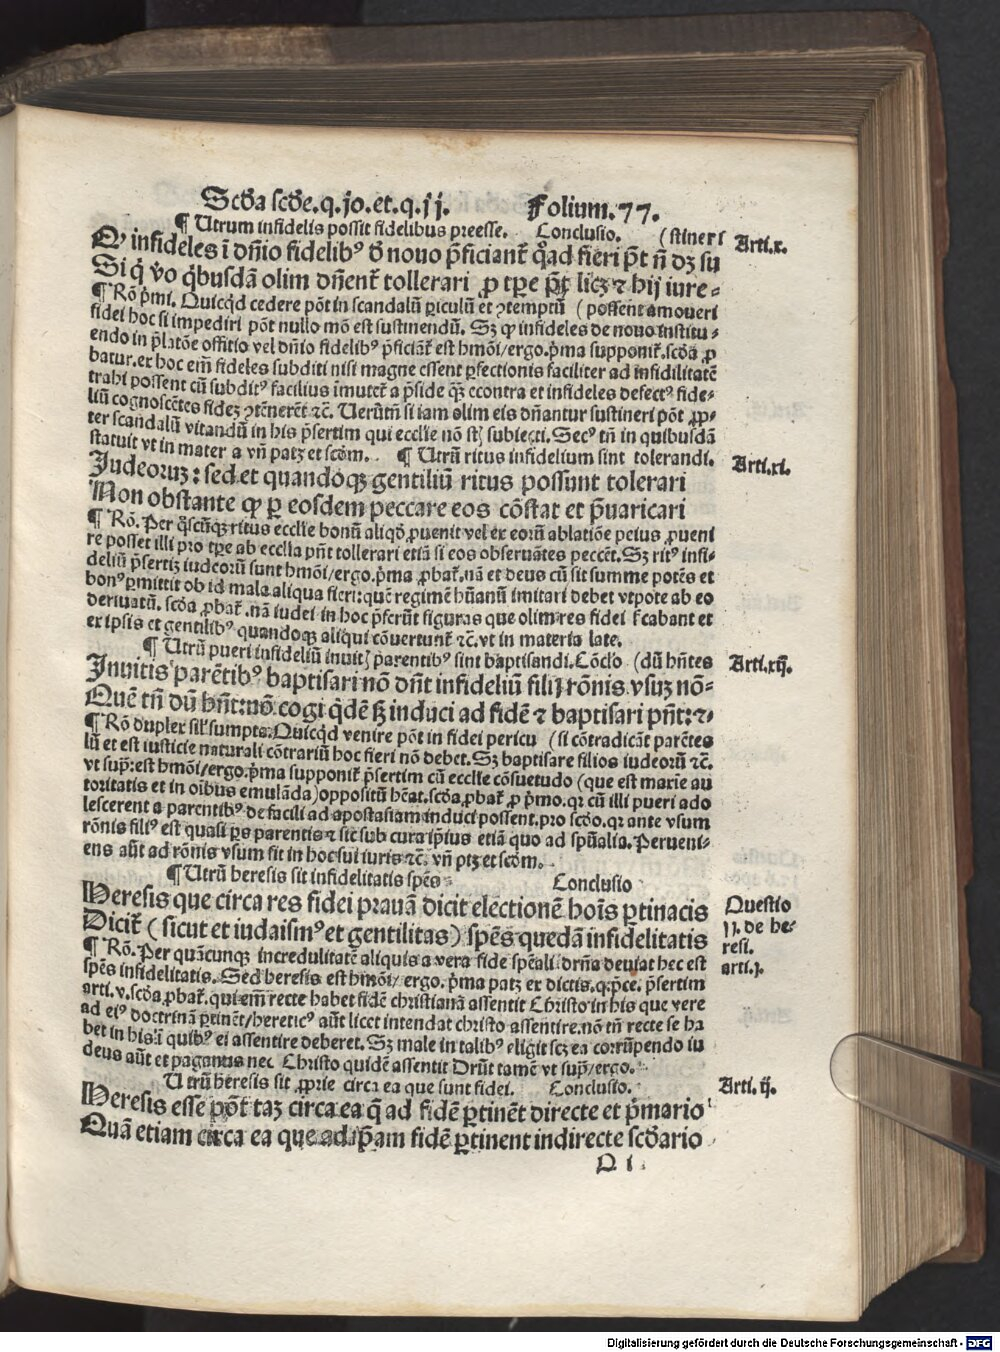 Scđa scđe.q.jo.et.q.jj. Folium.77.
¶ Utrum infidelis possit fidelibus preesse. Conclusio. (stineri
Arti.x.
Qͥ infideles ī dn̄io fidelibꝰ ð nouo p̄ficiant᷑ qͦad fieri pn̄t nō dꝫ su
Si qͥ ꝟo qͥbusdā olim dn̄ent᷑ tollerari ꝓ tꝑe pn̄t licꝫ ⁊ hij iure⸗
¶ Rō pͥmi. Quicqͥd cedere pōt in scandalū ꝑiculū et ↄtemptū (possent amoueri
fidei hoc si impediri pōt nullo mō est sustinendū. Sꝫ ꝙ infideles de nouo institu⸗
endo in p̄latōe offitio vel dn̄io fidelibꝰ p̄ficiāt᷑ est hmōi/ergo.pͥma supponit᷑.scđa ꝓ
batur.ex hoc em̄ fideles subditi nisi magne essent ꝑfectionis faciliter ad infidilitatē
trahi possent cū subditꝰ facilius īmutet᷑ a p̄side qͣꝫ econtra et infideles defectꝰ fide⸗
liū cognoscētes fideꝫ ↄtēnerēt ⁊c̄. Uerūtn̄ si iam olim eis dn̄antur sustineri pōt ꝓp⸗
ter scandalū vitandū in his p̄sertim qui ecclie nō st̄ subiecti. Secꝰ tn̄ in quibusdā
statuit vt in mater a vn̄ patꝫ et scōm. ¶ Utrū ritus infidelium sint tolerandi.
Arti.xi.
Judeoruꝫ: sed et quandoqꝫ gentiliū ritus possunt tolerari
Non obstante ꝙ ꝑ eosdem peccare eos cōstat et p̄uaricari
¶ Rō. Per qͣscūqꝫ ritus ecclie bonū aliqͦd ꝓuenit vel ex eorū ablatiōe peius ꝓueni
re posset illi pro tꝑe ab ecclīa pn̄t tollerari etiā si eos obseruātes peccēt. Sꝫ ritꝰ infi⸗
deliū p̄sertiꝫ iudeorū sunt hmōi/ergo.pͥma ꝓbat᷑.nā et deus cū sit summe potēs et
bonꝰ ꝑmittit ob id mala aliqua fieri:quē regimē hūanū imitari debet vtpote ab eo
deriuatū. scđa ꝓbat᷑.nā iudei in hoc p̄ferūt figuras que olim res fidei f᷑cabant et
ex ipsis et gentilibꝰ quandoqꝫ aliqui cōuertunt᷑ ⁊c̄.vt in materia late.
¶ Utrū pueri infideliū inuitꝭ parentibꝰ sint baptisandi.Cōclo (dū hn̄tes
Arti.xij.
Inuitis parētibꝰ baptisari nō dn̄t infideliū filij rōnis vsuꝫ nō⸗
Quē tn̄ dū hn̄t:nō cogi qͥdē sꝫ induci ad fidē ⁊ baptisari pn̄t:⁊⸗
¶ Rō duplex silꝰ sumpta.Quicqͥd venire pōt in fidei pericu (si cōtradicāt parētes
lū et est iusticie naturali cōtrariū hoc fieri nō debet. Sꝫ baptisare filios iudeorū ⁊c̄.
vt supͣ:est hmōi/ergo.pͥma supponit᷑ p̄sertim cū ecclie cōsuetudo (que est maxīe au
toritatis et in oībus emulāda)oppositū hēat.scđa ꝓbat᷑ ꝓ pͥmo.qꝛ cū illi pueri ado
lescerent a parentibꝰ de facili ad apostasiam induci possent.pro scđo.qꝛ ante vsum
rōnis filiꝰ est quasi ꝑs parentis ⁊ sic sub cura ip̄ius etiā quo ad sp̄ualia. Perueni⸗
ens aūt ad rōnis vsum fit in hoc sui iuris ⁊c̄. vn̄ ptꝫ et scōm.
¶ Utrū heresis sit infidelitatis spēs⸗ Conclusio
Heresis que circa res fidei prauā dicit electionē hoīs ꝑtinacis
Questio
jj. de he⸗
resi.
arti.j.
Dicit᷑ (sicut et iudaismꝰ et gentilitas) spēs quedā infidelitatis
¶ Rō. Per quācunqꝫ incredulitatē aliquis a vera fide spēali drn̄a deuiat hec est
spēs infidelitatis. Sed heresis est hmōi/ ergo. pͥma patꝫ ex dictis.q.p̄ce. p̄sertim
arti.v.scđa ꝓbat᷑.qui em̄ recte habet fidē christianā assentit Christo in his que vere
ad eiꝰ doctrinā ꝑtinēt/hereticꝰ aūt licet intendat christo assentire.nō tn̄ recte se ha
bet in his ī quibꝰ ei assentire deberet. Sꝫ male in talibꝰ eligit scꝫ ea corrūpendo iu
deus aūt et paganus nec Christo quidē assentit Drūt tamē vt supͣ/ergo.
U trū heresis sit ꝓprie circa ea que sunt fidei. Conclusio.
Arti. ij.
Heresis esse pōt taꝫ circa ea q̄ ad fidē ꝑtinēt directe et pͥmario
Quā etiam circa ea que ad ip̄am fidē ꝑtinent indirecte scđario
Q i
Digitalisierung gefördert durch die Deutsche Forschungsgemeinschaft - DFG